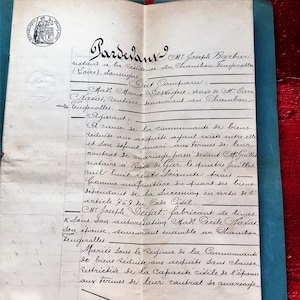 Pardevant Me Joseph Barbier
notaire à la résidence du Chambon Feugerolles
(Loire), soussigné
Est Comparu:
Made Marie
rentière demeurant au Chambon
Feugerolles
Agissant:
A cause de la communauté de biens
réduite aux acquêts ayant existé entre elle
et son défunt mari aux termes de leur
contrat de mariage passé devant Me
notaire le quatre juillet
mil huit cent soixante trois
Comme usufruitière du quart des biens
dépendant de la succession en vertu de l'
article 767 du Code Civil
Mr Joseph fabricant de limes
et sous son autorisation Made
son épouse, demeurant ensemble au Chambon
Feugerolles
Mariés sous le régime de la Communauté
de biens réduite aux acquêts sans clause
restrictive de la capacité civile de l'épouse
aux termes de leur contrat de mariage